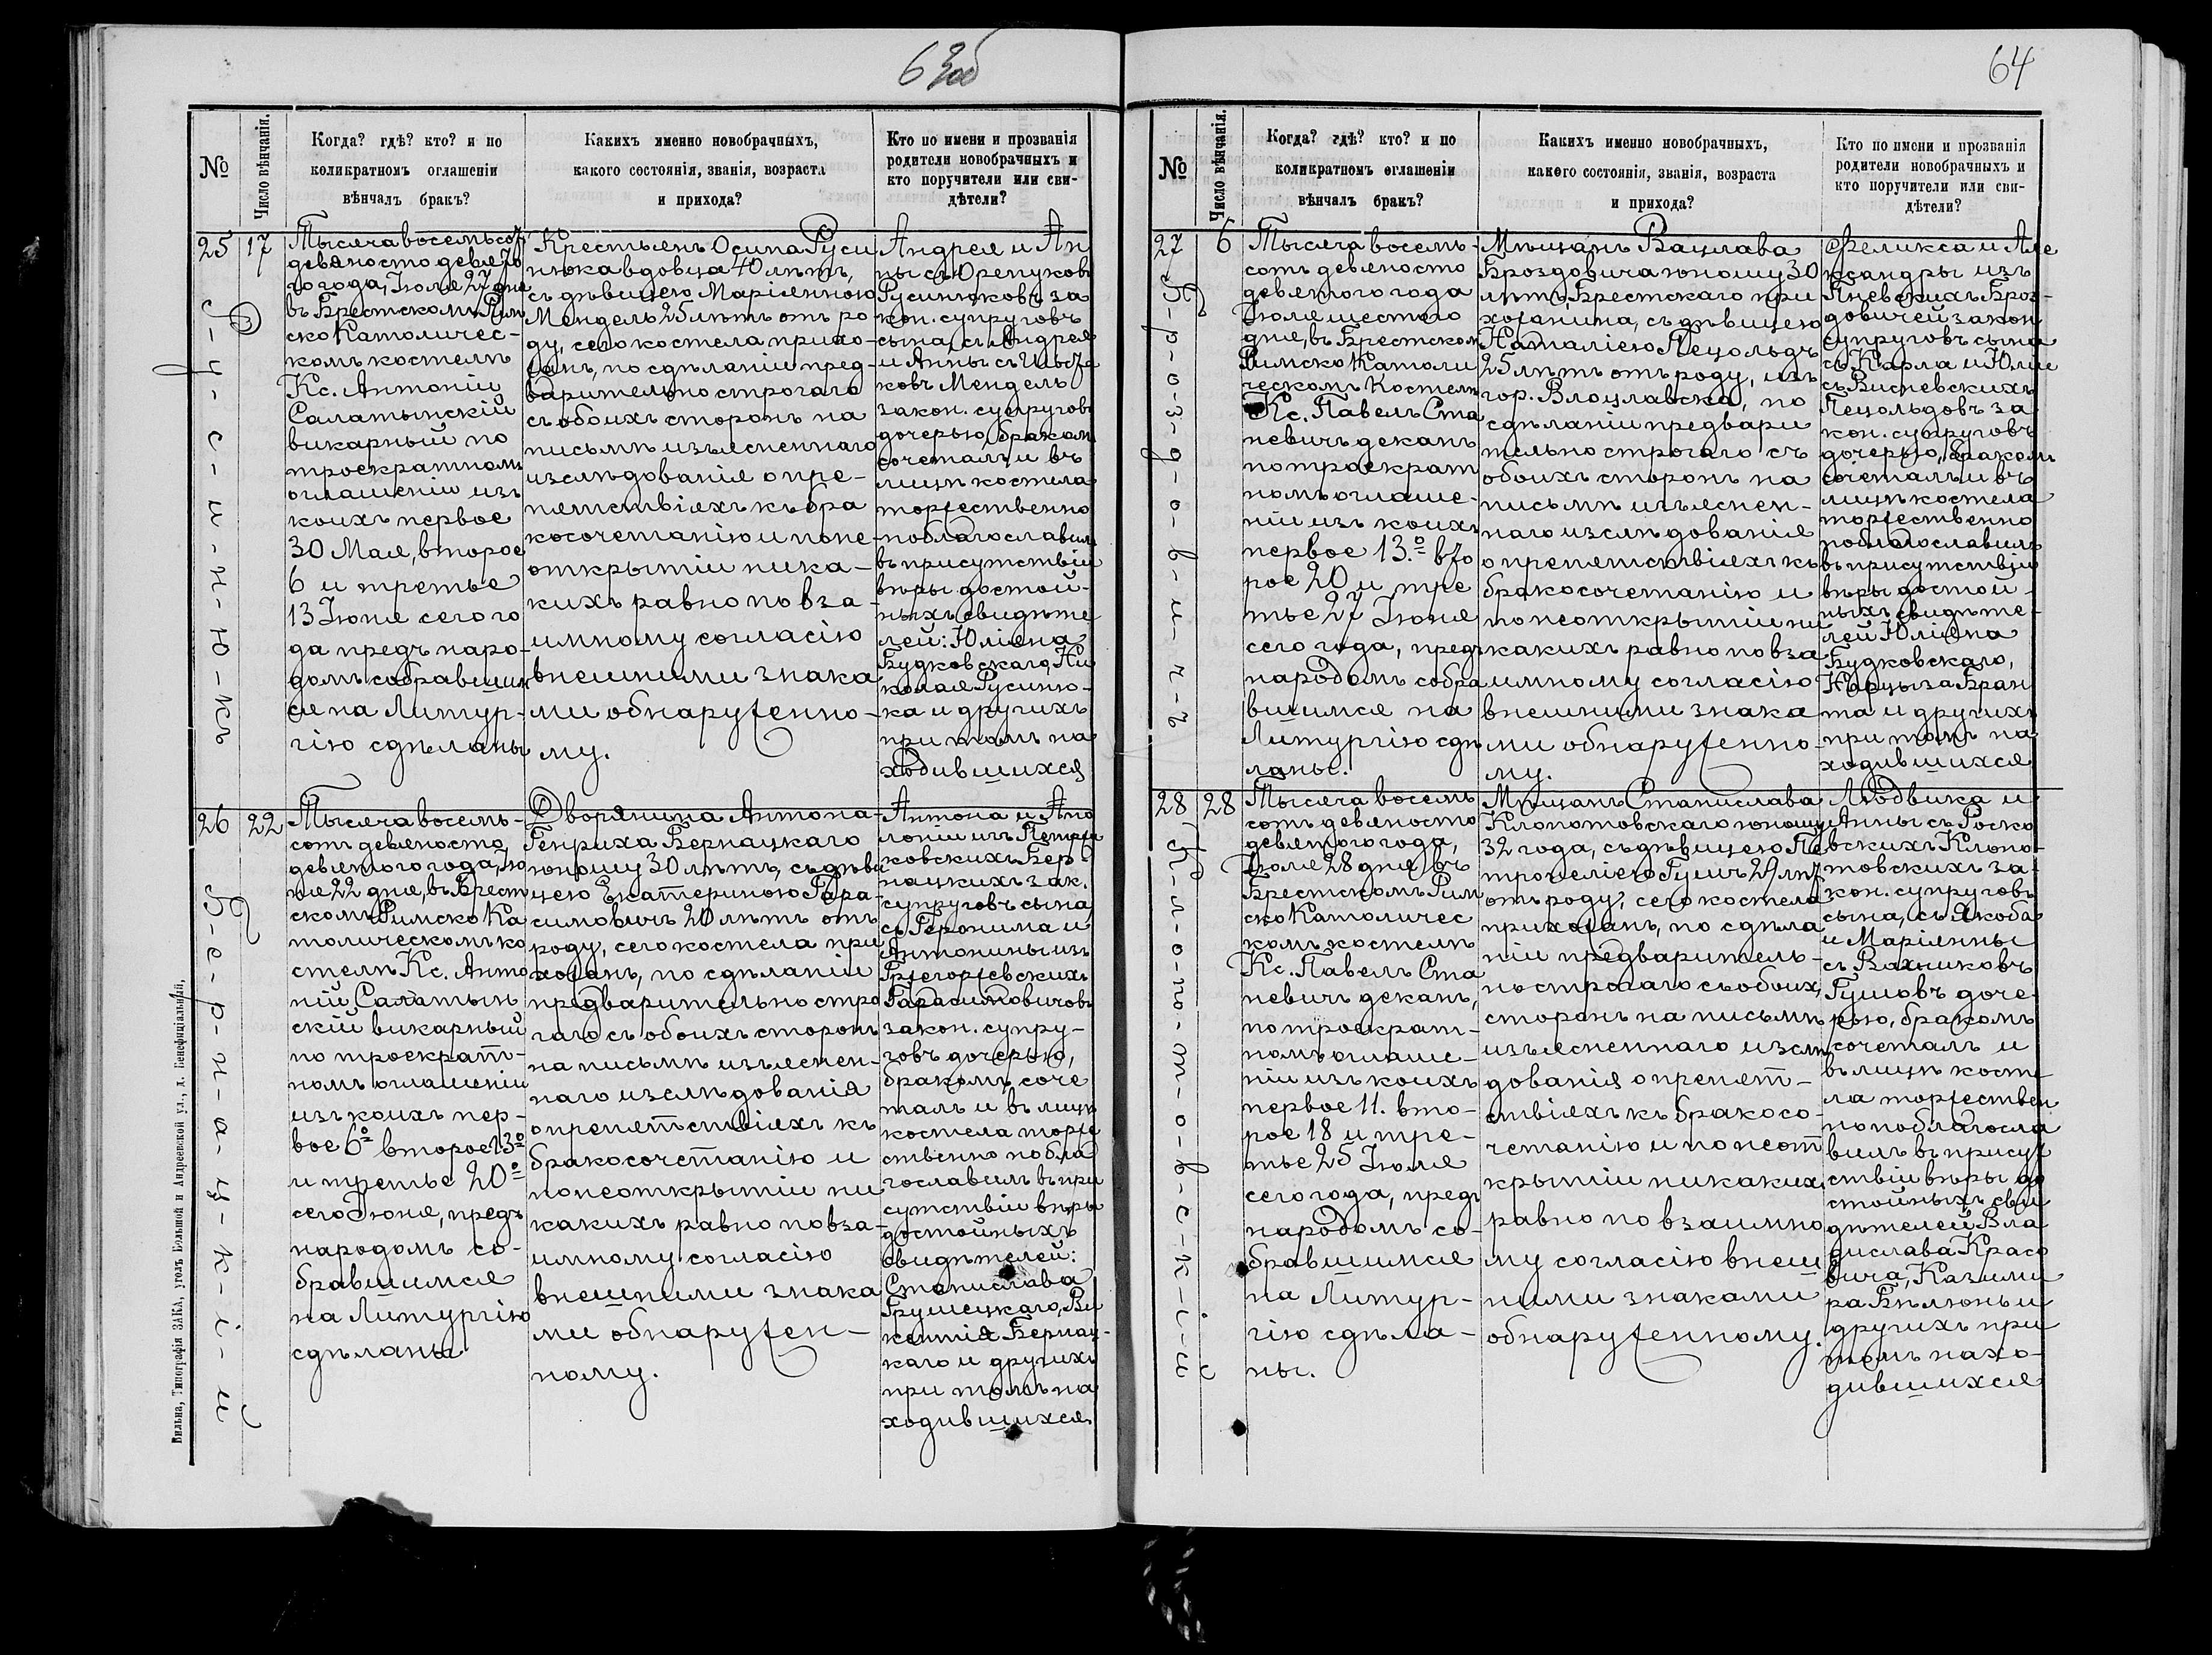 63об
№
Число вѣнчанія.
Когда? гдѣ? кто? и по
коликратномъ оглашеніи
вѣнчалъ бракъ?
Какихъ именно новобрачныхъ,
какого состоянія, званія, возраста
и прихода?
Кто по имени и прозванія
родители новобрачныхъ и
кто поручители или сви-
дѣтели?
25
17
Р-у-с-и-н-ю-къ
Тысяча восемьсотъ
девяносто девято
го года, Іюля 27 дня
въ Брестскомъ Рим
ско Католичес-
комъ костелѣ
Кс. Антоній
Салатынскій
викарный по
троекратномъ
оглашеніи изъ
коихъ первое
30 Мая, второе
6 и третье
13 Іюня сего го
да предъ наро-
домъ собравшим
ся на Литур-
гію сдѣланы
Крестьянъ Осипа Руси
нюка вдовца 40 лѣтъ,
съ дѣвицею Маріянною
Мендель 25 лѣтъ отъ ро
ду, сего костела прихо-
жанъ, по сдѣланіи пред-
варительно строгаго
съ обоихъ сторонъ на
письмѣ изъясненнаго
изслѣдованія о пре-
пятствіяхъ къ бра
косочетанію и по не-
открытіи ника-
кихъ равно по вза
имному согласію
внешними знака
ми обнаруженно-
му.
Андрея и Ан
ны съ
Русинюковъ за
кон. супруговъ
сына, съ Андрея
и Анны съ
ковъ Мендель
закон. супруговъ
дочерью, бракомъ
сочеталъ и въ
лицѣ костела
торжественно
поблагославилъ
въ присутствіи
вѣры достой-
ныхъ свидѣте
лей: Юліана
Будковскаго, Ни
колая Русиню-
ка и другихъ
при томъ на
ходившихся
26
22
Б-е-р-н-а-ц-к-і-й
Тысяча восемь-
сотъ девяносто
девятого года, Ію
ня 22 дня, въ Брест
скомъ Римско Ка
толическомъ ко
стелѣ Кс. Анто
ній Салатын
скій викарный
по троекрат-
номъ оглашеніи
изъ коихъ пер-
вое 6º второе 13º
и третье 20º
сего Іюня, предъ
народомъ со-
бравшимся
на Литургію
сдѣланы
Дворянина Антона-
Генриха Бернацкаго
юношу 30 лѣтъ, съ дѣви
цею Екатериною Гара-
симовичъ 20 лѣтъ отъ
роду, сего костела при
хожанъ, по сдѣланіи
предварительно стро
гаго съ обоихъ сторонъ
на письмѣ изъяснен-
наго изслѣдованія
о препятствіяхъ къ
бракосочетанію и
по неоткрытіи ни
какихъ равно по вза-
имному согласію
внешними знака
ми обнаружен-
ному.
Антона и Апо
лоніи изъ
ковскихъ Бер-
нацкихъ зак.
супруговъ сына,
съ Геронима и
Антонины изъ
Гржегоржевскихъ
Гарасимовичовъ
закон. супру-
говъ дочерью,
бракомъ соче
талъ и въ лицѣ
костела торже
ственно побла
гославилъ въ при
сутствіи вѣры
достойныхъ
свидѣтелей:
Станислава
Грушецкаго, Ви
кентія Бернац-
каго и другихъ
при томъ на
ходившихся.
Вильна, Типографія ЗАКА, уголъ Большой и Андреевской ул., д. Бенефиціальный,
64
№
Число вѣнчанія.
Когда? гдѣ? кто? и по
коликратномъ оглашеніи
вѣнчалъ бракъ?
Какихъ именно новобрачныхъ,
какого состоянія, званія, возраста
и прихода?
Кто по имени и прозванія
родители новобрачныхъ и
кто поручители или сви-
дѣтели?
27
6
Б-р-о-з-д-о-в-и-ч-ъ
Тысяча восемь-
сотъ девяносто
девятого года
Іюля шестого
дня, въ Брестскомъ
Римско Католи
ческомъ Костелѣ
Кс. Павелъ Ста
невичъ деканъ
по троекрат
номъ оглаше-
ніи изъ коихъ
первое 13.º вто
рое 20 и тре
тье 27 Іюня
сего года, предъ
народомъ собра
вшимся на
Литургію сдѣ
ланы.
Мѣщанъ Вацлава
Броздовича юношу 30
лѣтъ, Брестскаго при
хожанина, съ дѣвицею
Наталіею Пецольдъ
25 лѣтъ отъ роду, изъ
гор. Влоцлавска, по
сдѣланіи предвари
тельно строгаго съ
обоихъ сторонъ на
письмѣ изъяснен-
наго изслѣдованія
о препятствіяхъ къ
бракосочетанію и
по неоткрытіи ни
какихъ равно по вза
имному согласію
внешними знака
ми обнаруженно-
му.
Феликса и Але
ксандры изъ
Пневскихъ Броз-
довичей закон
супруговъ сына
съ Карла и Юліи
съ Висневскихъ
Пецольдовъ за
кон. супруговъ
дочерью, бракомъ
сочеталъ и въ
лицѣ костела
торжественно
поблагославилъ
въ присутствіи
вѣры достой-
ныхъ свидѣте-
лей Юліана
Будковскаго,
Нарциза Бран
та и другихъ
при томъ на
ходившихся
28
28
К-л-о-по-т-о-в-с-к-і-й
Тысяча восемь
сотъ девяносто
девятого года,
Іюля 28 дня, въ
Брестскомъ Рим
ско Католичес
комъ костелѣ
Кс. Павелъ Ста
невичъ деканъ,
по троекрат-
номъ оглаше-
ніи изъ коихъ
первое 11. вто-
рое 18 и тре-
тье 25 Іюля
сего года, предъ
народомъ со-
бравшимся
на Литур-
гію сдѣла-
ны.
Мѣщанъ Станислава
Клопотовскаго юношу
32 года, съ дѣвицею Пе
тронеліею Гушъ 29 лѣтъ
отъ роду, сего костела
прихожанъ, по сдѣла
ніи предваритель-
но строгаго съ обоихъ
сторонъ на письмѣ
изъясненнаго изслѣ
дованія о препят-
ствіяхъ къ бракосо-
четанію и по неот
крытіи никакихъ
равно по взаимно
му согласію внеш
ними знаками
обнаруженному.
Людвика и
Анны съ Роско
вскихъ Клопо-
товскихъ за-
кон. супруговъ
сына, съ Якоба
и Маріянны
съ Вахниковъ
Гушовъ доче-
рью, бракомъ
сочеталъ и
въ лицѣ косте
ла торжествен
но поблагосла
вилъ въ присут
ствіи вѣры до
стойныхъ сви
дѣтелей Вла
дислава Красо
вича, Казими
ра Бѣлюнь и
другихъ при
томъ нахо-
дившихся